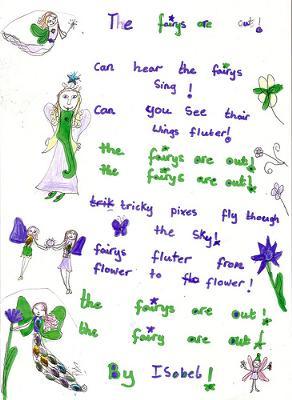 The fairys are out!
can hear the fairys
Sing!
Can you see thair
wings fluter!
the fairys are out!
the fairys are out!
trik tricky pixes fly though
the sky!
fairys fluter from
flower to flo flower!
the fairys are out!
the fairy are out!
By Isobel!